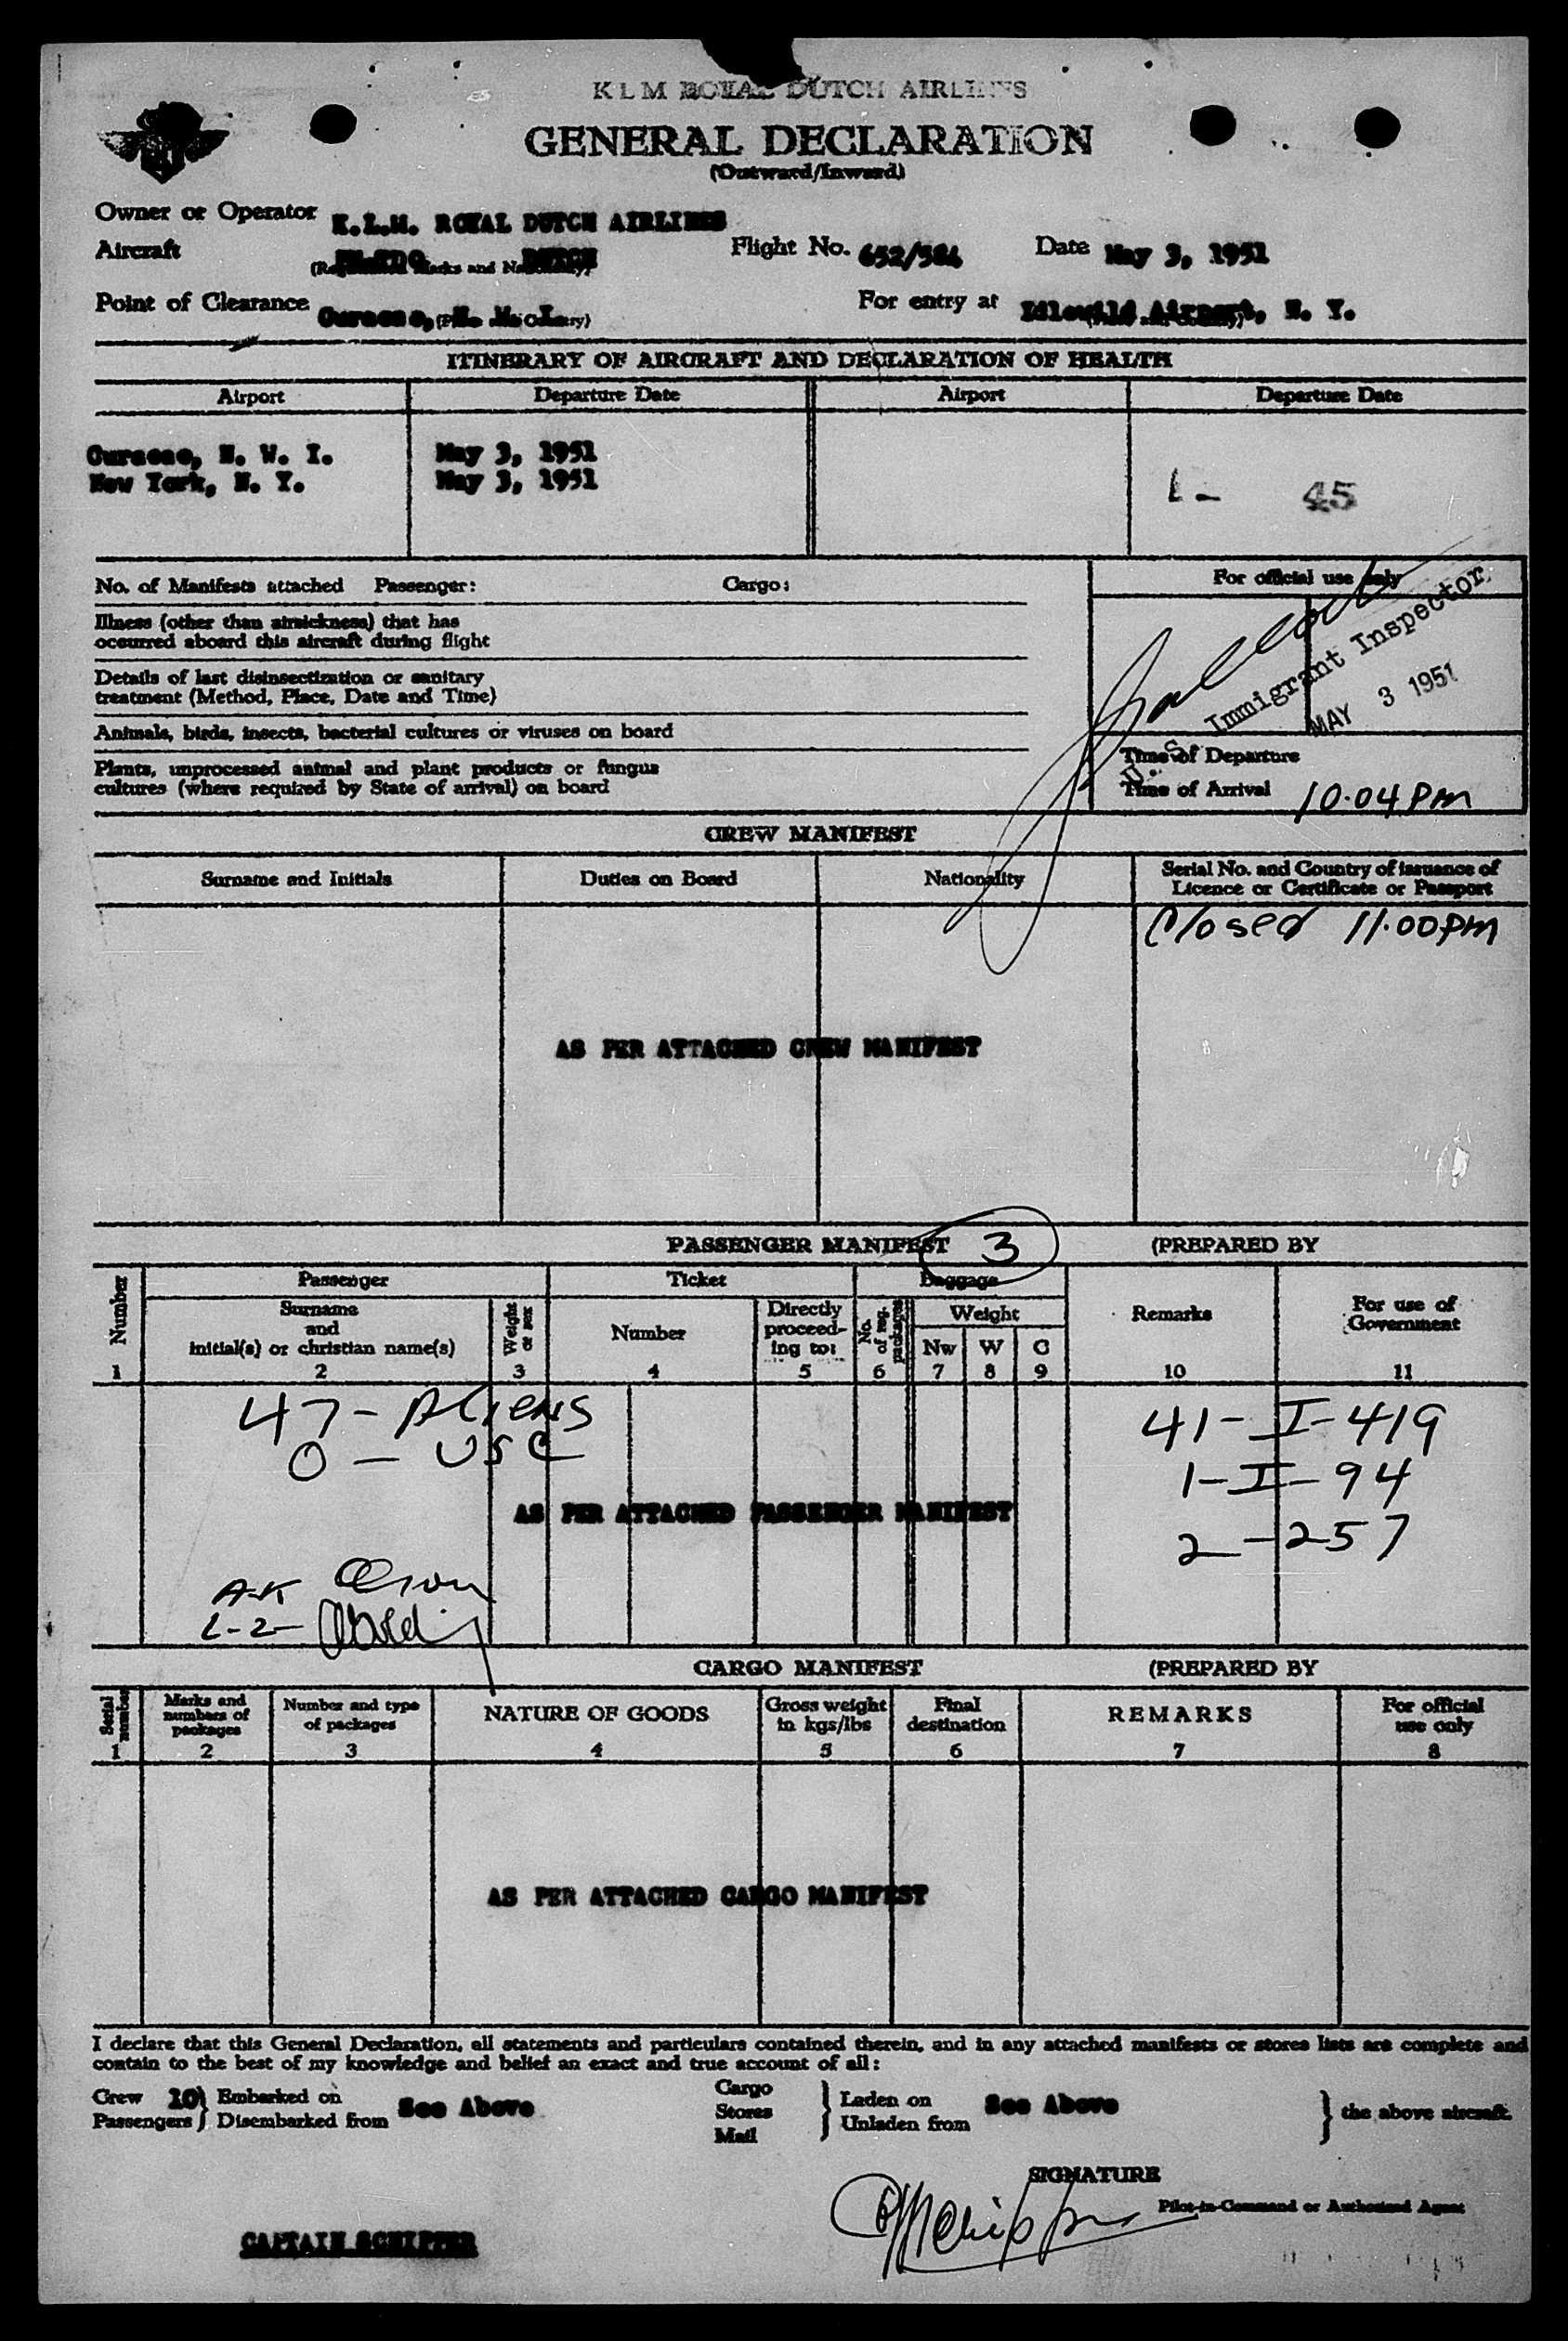 KLM ROYAL DUTCH AIRLINES
GENERAL DECLARATION
(Outward/Inward)
Owner or Operator K.L.M. ROYAL DUTCH AIRLINES
Aircraft DUTCH Flight No. 652/584 Date May 3, 1951
(Registration Marks and Nationality)
Point of Clearance Curacao, N. W. I. For entry at Idlewild Airport, N. Y.
(Place and Country) (Place and Country)
ITINERARY OF AIRCRAFT AND DECLARATION OF HEALTH
Airport Departure Date Airport Departure Date
Curacao, N. W. I. May 3, 1951
New York, N. Y. May 3, 1951
L - 45
No. of Manifests attached Passenger: Cargo: For official use only
Illness (other than airsickness) that has
occurred aboard this aircraft during flight
Details of last disinsectization or sanitary
treatment (Method, Place, Date and Time)
U. S. Immigrant Inspector
MAY 3 1951
Animals, birds, insects, bacterial cultures or viruses on board
Plants, unprocessed animal and plant products or fungus
cultures (where required by State of arrival) on board
Time of Departure
Time of Arrival 10.04 PM
CREW MANIFEST
Surname and Initials Duties on Board Nationality Serial No. and Country of issuance of
Licence or Certificate or Passport
Closed 11.00 PM
AS PER ATTACHED CREW MANIFEST
PASSENGER MANIFEST 3 (PREPARED BY
Number Passenger Ticket Baggage Remarks For use of
Government
Surname
and
initial(s) or christian name(s)
Weight
or sex
Number
Directly
proceed-
ing to:
No.
of reg.
packages
Weight
Nw W C
1 2 3 4 5 6 7 8 9 10 11
47 - Aliens 41 - I - 419
0 - USC 1 - I - 94
AS PER ATTACHED PASSENGER MANIFEST
2 - 257
A-K Olson
L-2-
CARGO MANIFEST (PREPARED BY
Serial
number
Marks and
numbers of
packages
Number and type
of packages
NATURE OF GOODS
Gross weight
in kgs/lbs
Final
destination
REMARKS
For official
use only
1 2 3 4 5 6 7 8
AS PER ATTACHED CARGO MANIFEST
I declare that this General Declaration, all statements and particulars contained therein, and in any attached manifests or stores lists are complete and
contain to the best of my knowledge and belief an exact and true account of all:
Crew 10 } Embarked on See Above Cargo } Laden on See Above } the above aircraft.
Passengers } Disembarked from Stores Unladen from
Mail
SIGNATURE
Pilot-in-Command or Authorised Agent
CAPTAIN SCHIPPER